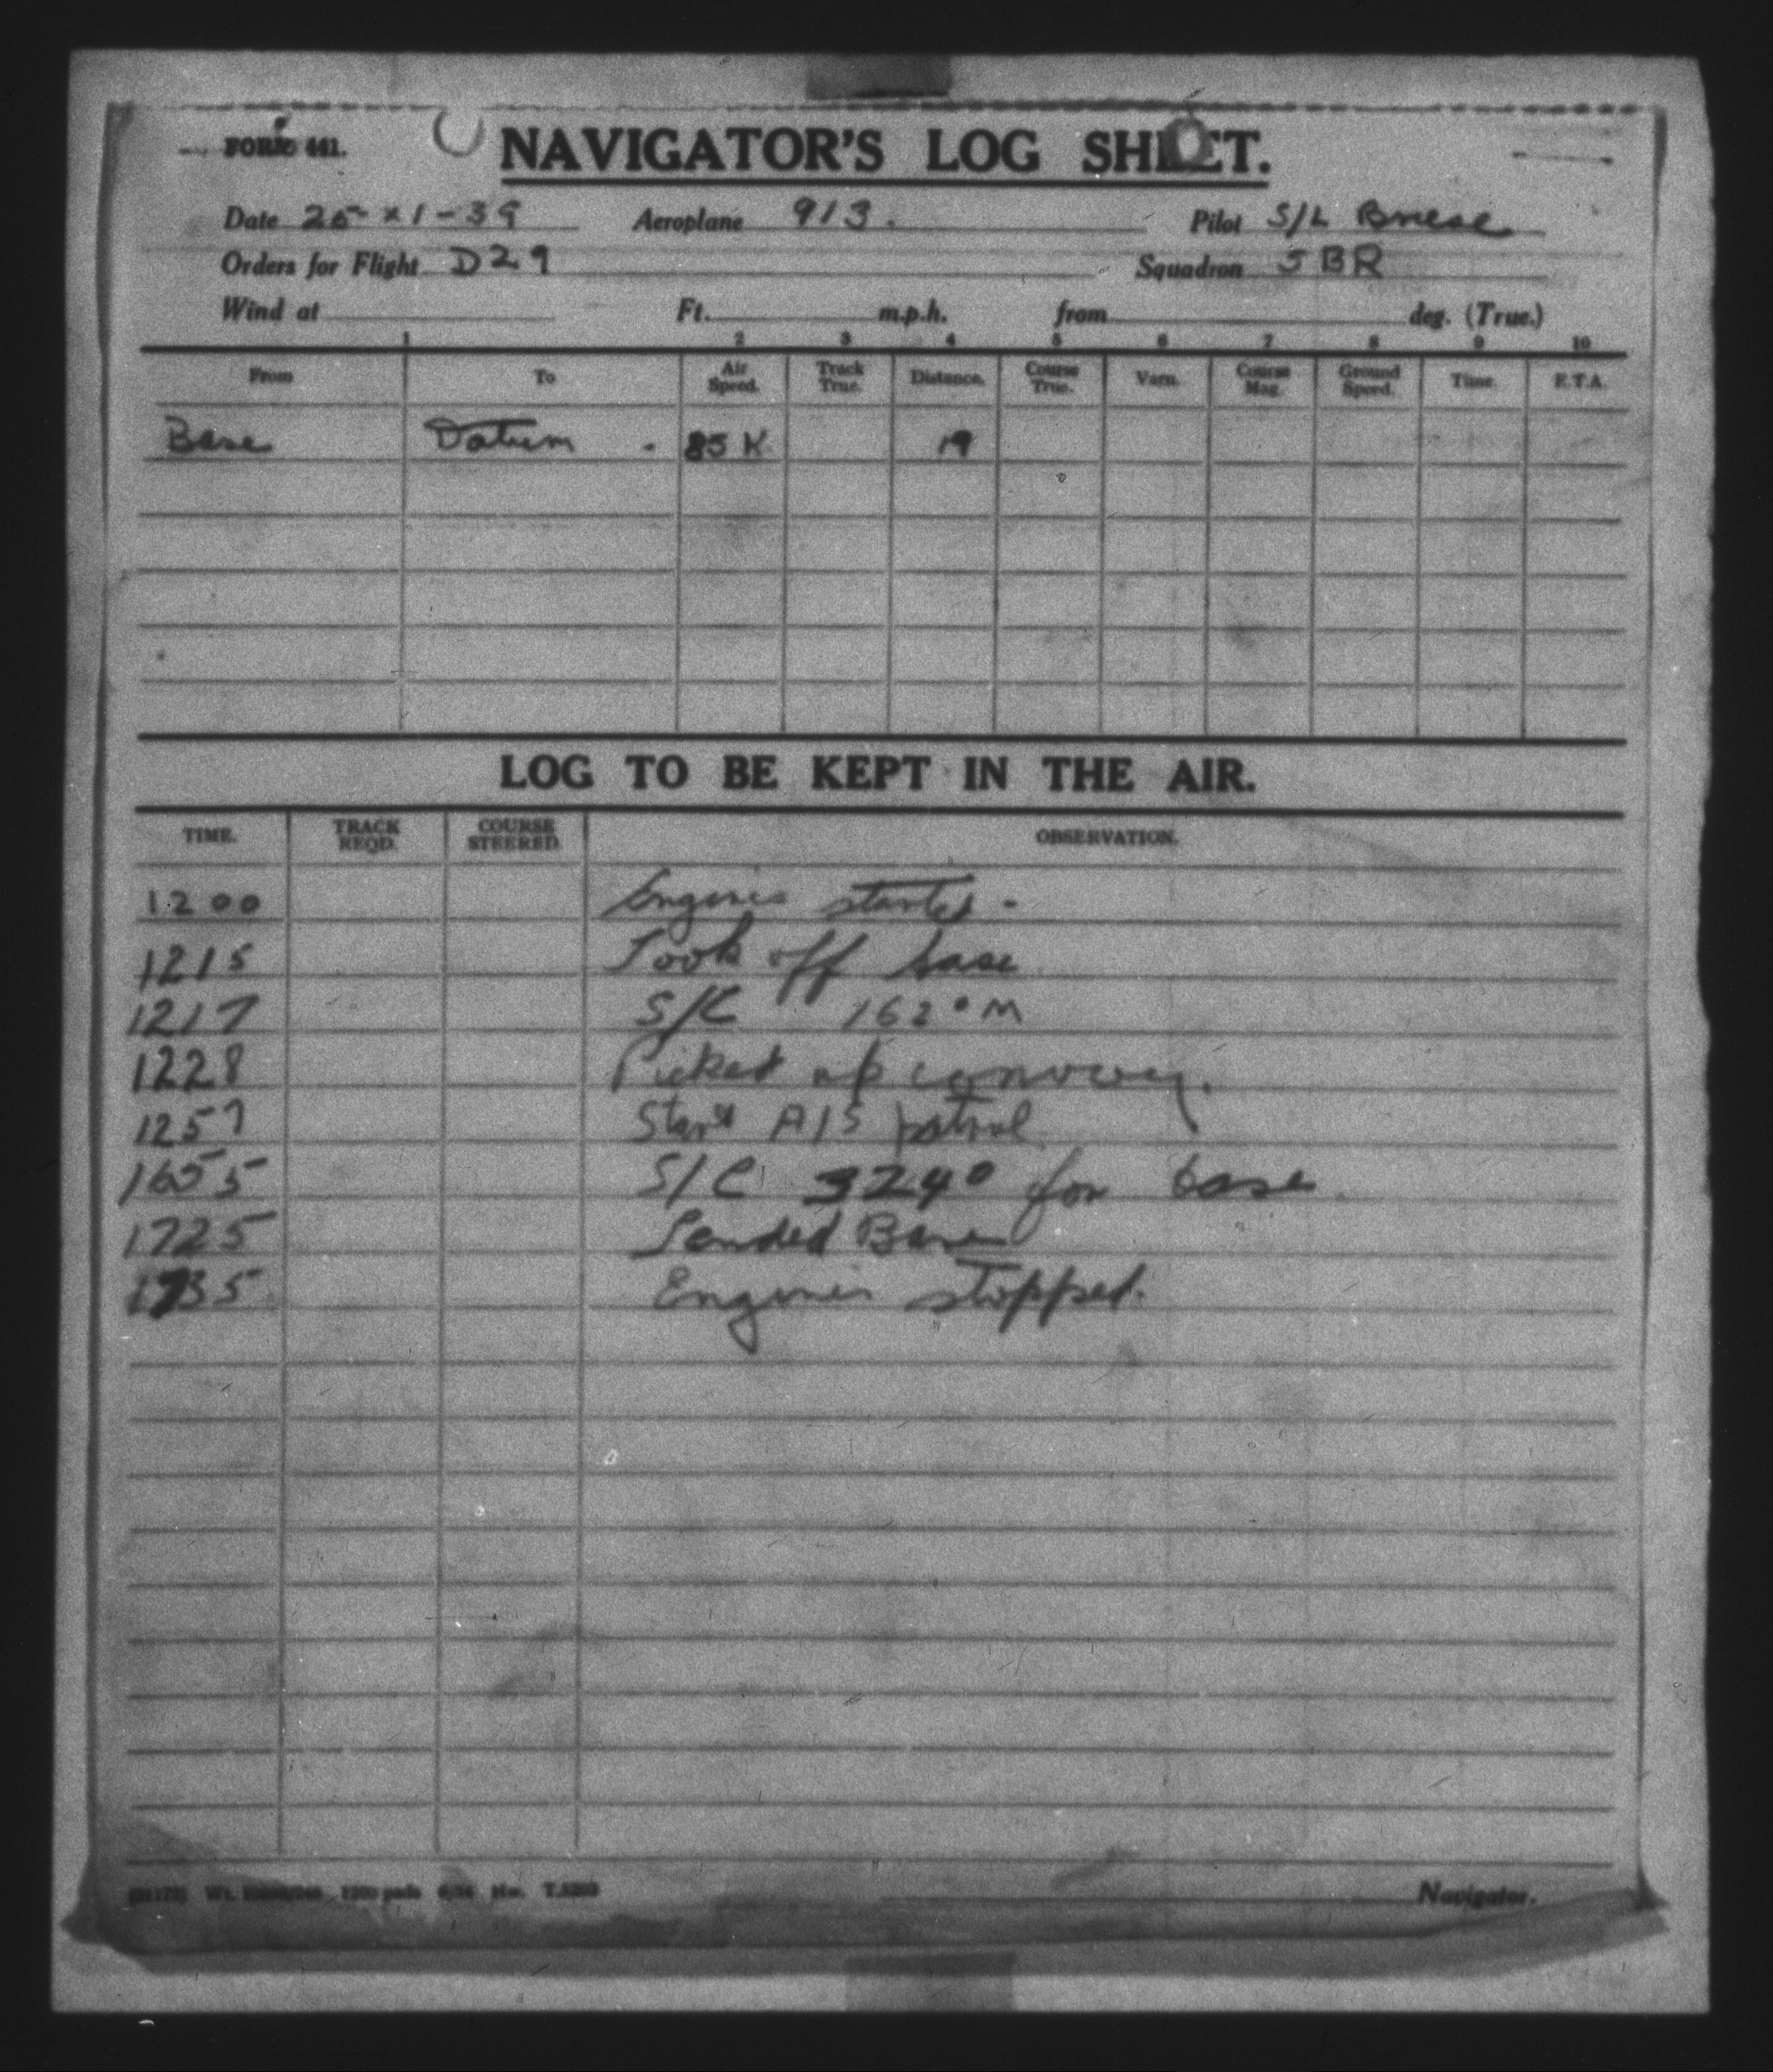 FORM 441. NAVIGATOR'S LOG SHEET.
Date 25-X1-39 Aeroplane 913. Pilot S/L
Orders for Flight D29 Squadron 5 BR
Wind at Ft. m.p.h. from deg. (True.)
1 2 3 4 5 6 7 8 9 10
From To Air Speed. Track True. Distance. Course True. Varn. Course Mag. Ground Speed. Time. E.T.A.
Base Datum . 85 K 19
LOG TO BE KEPT IN THE AIR.
TIME. TRACK REQD. COURSE STEERED. OBSERVATION.
1200 Engines started -
1215 Took off base
1217 S/C 162° M
1228 Picked up convoy.
1257 Start A/S patrol
1655 S/C 324° for base
1725 Landed Base
1735 Engines stopped.
1200 pads
Navigator.